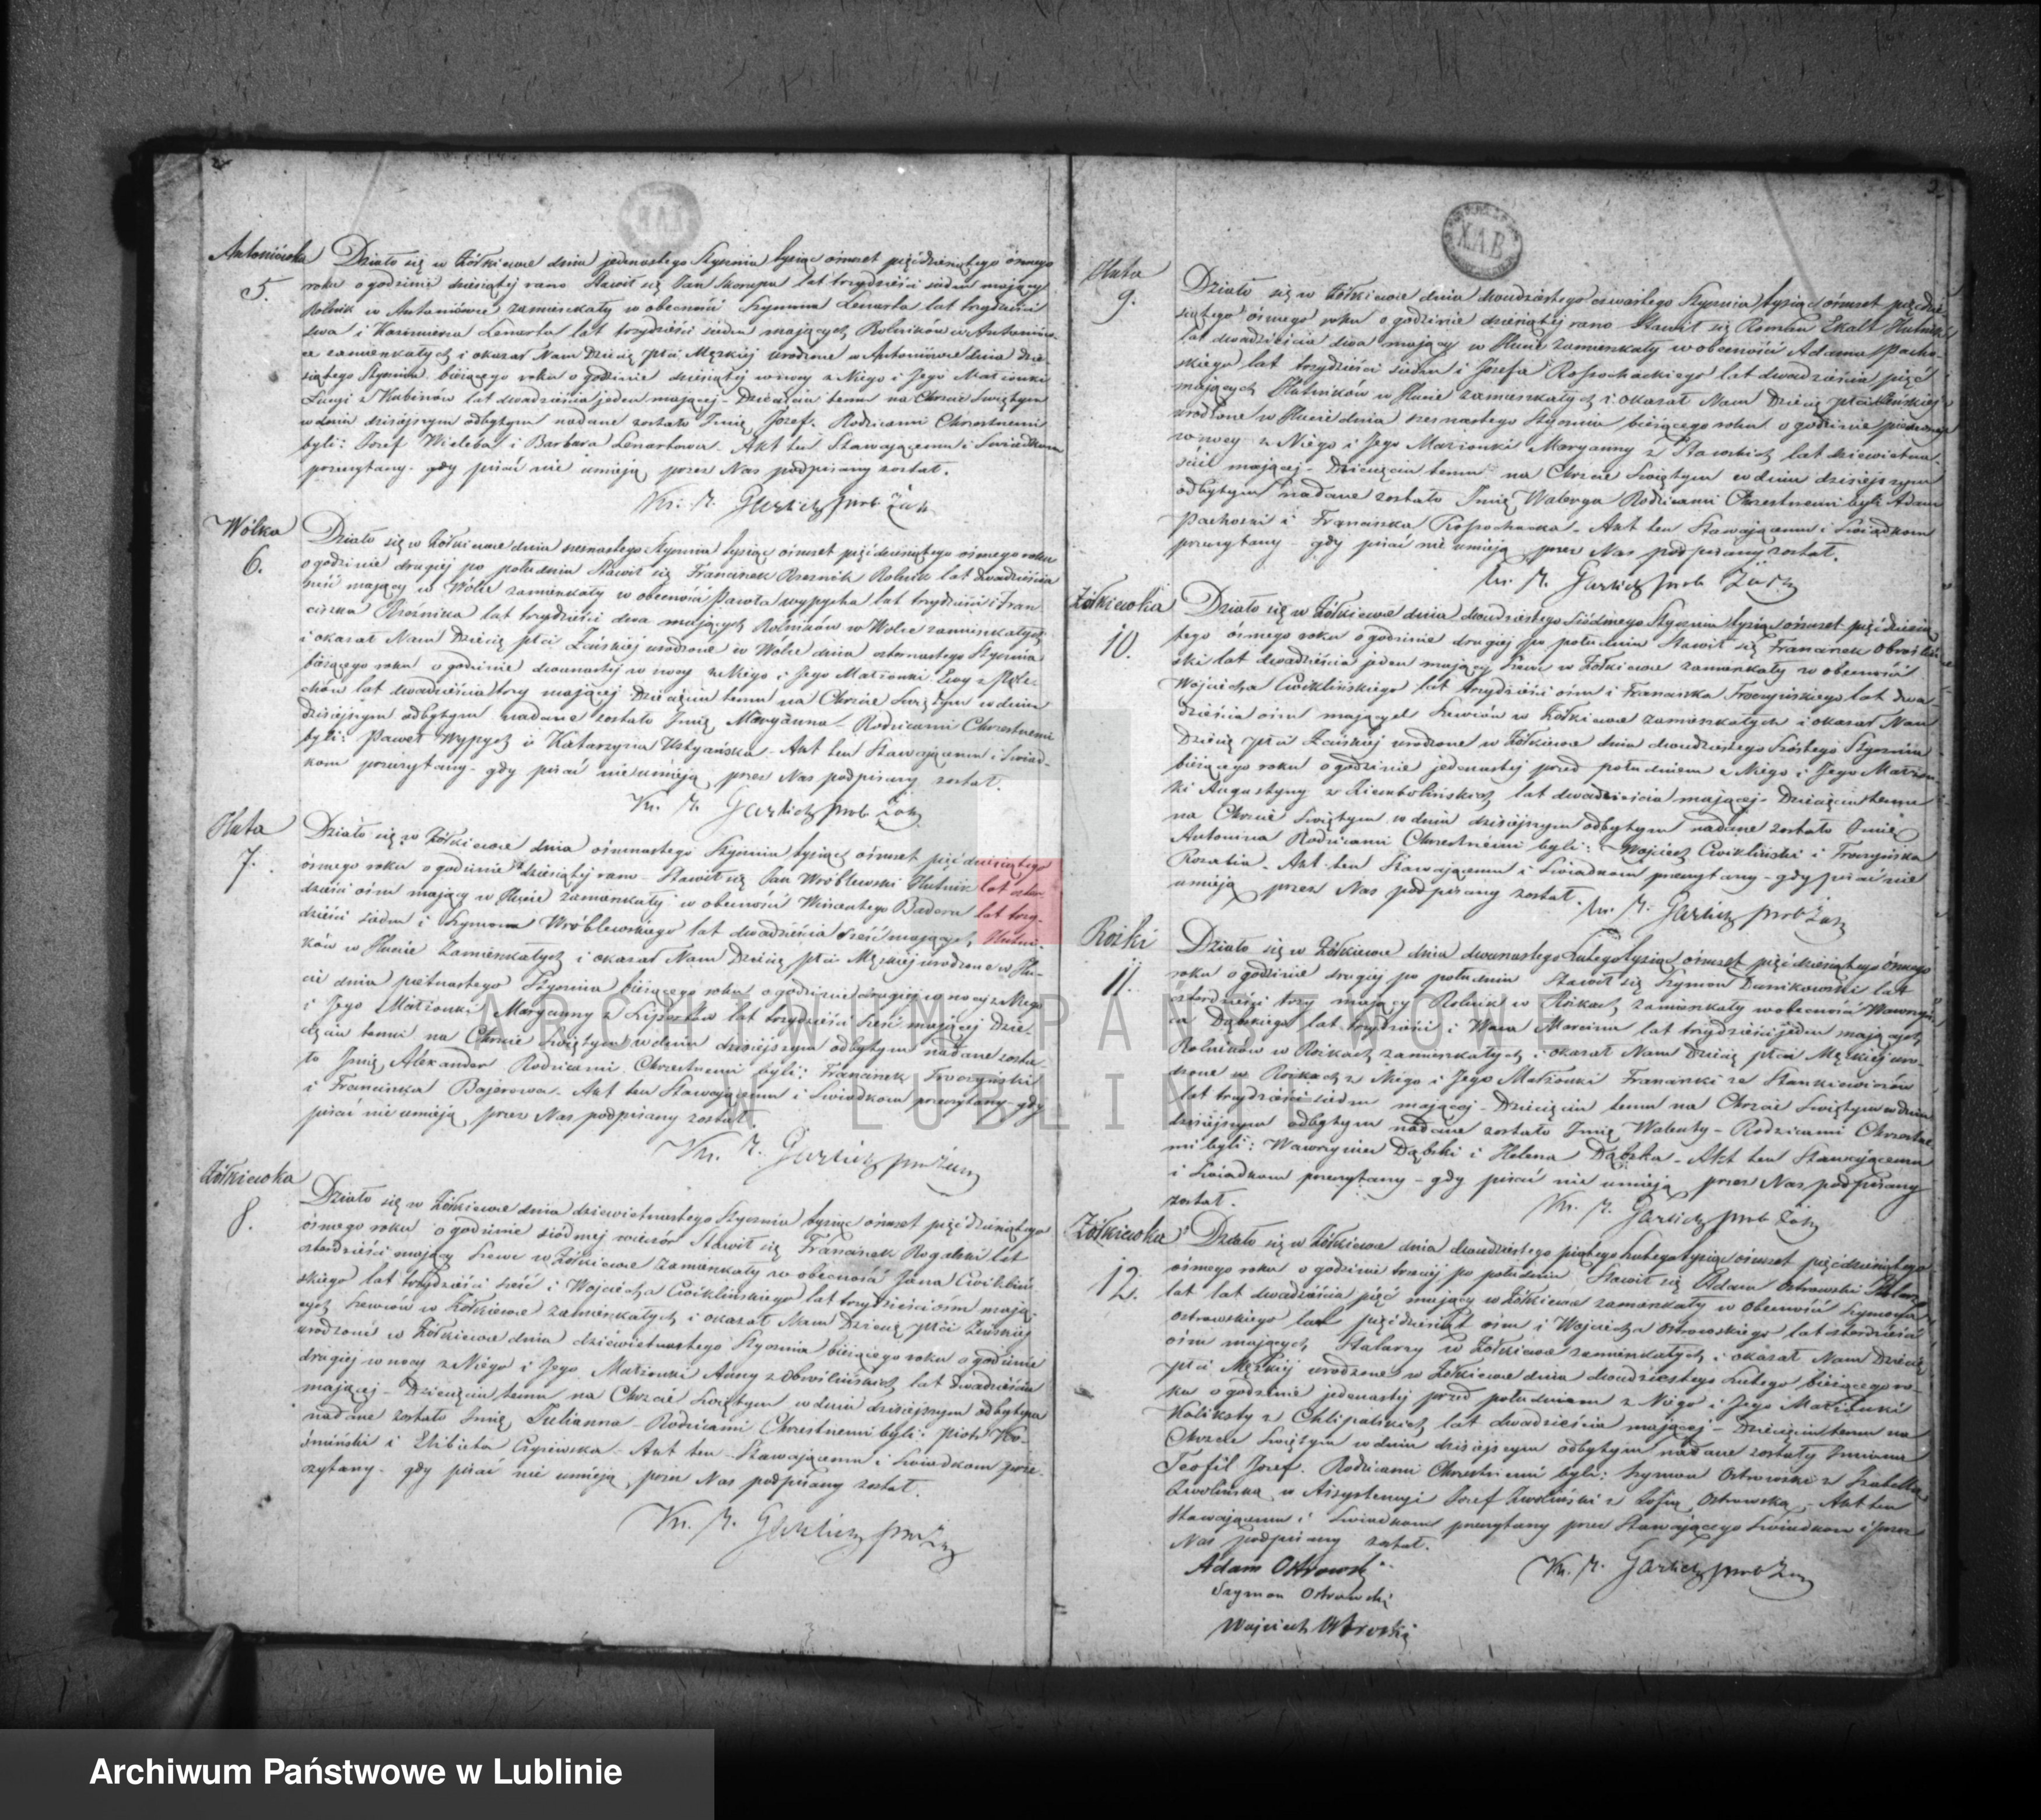 Antoniówka
5.
Działo się w Żółkiewce dnia jedenastego Stycznia tysiąc ośmset pięćdziesiątego ósmego
roku o godzinie dziesiątej rano Stawił się Jan Skorupa lat trzydzieści siedm mający
Rolnik w Antoniówce zamieszkały w obecności Szymona Lenarta lat trzydzieści
dwa i Kazimierza Lenarta lat trzydzieści siedm mających Rolników w Antoniów-
ce zamieszkałych i okazał Nam Dziecię płci Męzkiej urodzone w Antoniówce dnia dzie-
siątego Stycznia bieżącego roku o godzinie dziesiątej w nocy z Niego i Jego Małżonki
Łucyi z Kubinów lat dwadzieścia jeden mającej – Dziecięciu temu na Chrzcie Świętym
w dniu dzisiejszym odbytym nadane zostało Imię Józef. Rodzicami Chrzestnemi
byli: Józef Wieleba i Barbara Lenartowa – Akt ten Stawającemu i Świadkom
przeczytany – gdy pisać nie umieją przez Nas podpisany został.
Wólka
6.
Działo się w Żółkiewce dnia szesnastego Stycznia tysiąc ośmset pięćdziesiątego ósmego roku
o godzinie drugiej po południu Stawił się Franciszek Rolnik lat dwadzieścia
mający w Wólce zamieszkały w obecności Pawła Wypycha lat trzydzieści i Fran-
ciszka lat trzydzieści dwa mających Rolników w Wólce zamieszkałych
i okazał Nam Dziecię płci Żeńskiej urodzone w Wólce dnia czternastego Stycznia
bieżącego roku o godzinie dwunastej w nocy z Niego i Jego Małżonki Ewy z
lat dwadzieścia trzy mającej Dziecięciu temu na Chrzcie Świętym w dniu
dzisiejszym odbytym nadane zostało Imię Maryanna – Rodzicami Chrzestnemi
byli: Paweł Wypych i Katarzyna – Akt ten Stawającemu i Świad-
kom przeczytany – gdy pisać nie umieją przez Nas podpisany został.
Huta
7.
Działo się w Żółkiewce dnia ośmnastego Stycznia tysiąc ośmset pięćdziesiątego
ósmego roku o godzinie dziesiątej rano – Stawił się Jan Wróblewski Hutnik lat czter-
dzieści ośm mający w Hucie zamieszkały w obecności Wincentego Badora lat trzy-
dzieści siedm i Szymona Wróblewskiego lat dwadzieścia sześć mających Hutni-
ków w Hucie zamieszkałych i okazał Nam Dziecię płci Męzkiej urodzone w Hu-
cie dnia piętnastego Stycznia bieżącego roku o godzinie drugiej w nocy z Niego
i Jego Małżonki Maryanny z lat trzydzieści sześć mającej Dzie-
cięciu temu na Chrzcie Świętym w dniu dzisiejszym odbytym nadane zosta-
ło Imię Alexander Rodzicami Chrzestnemi byli: Franciszek Troczyński
i Franciszka Bajerowa – Akt ten Stawającemu i Świadkom przeczytany – gdy
pisać nie umieją przez Nas podpisany został.
Żółkiewka
8.
Działo się w Żółkiewce dnia dziewiętnastego Stycznia tysiąc ośmset pięćdziesiątego
ósmego roku o godzinie siódmej wieczór Stawił się Franciszek Rogalski lat
czterdzieści mający Szewc w Żółkiewce zamieszkały w obecności Jana Ćwikliń-
skiego lat trzydzieści sześć i Wojciecha Ćwiklińskiego lat trzydzieści ośm mają-
cych Szewców w Żółkiewce zamieszkałych i okazał Nam Dziecię płci Żeńskiej
urodzone w Żółkiewce dnia dziewiętnastego Stycznia bieżącego roku o godzinie
drugiej w nocy z Niego i Jego Małżonki Anny z lat dwadzieścia
mającej – Dziecięciu temu na Chrzcie Świętym w dniu dzisiejszym odbytym
nadane zostało Imię Julianna – Rodzicami Chrzestnemi byli: Piotr
i Elżbieta – Akt ten Stawającemu i Świadkom prze-
czytany – gdy pisać nie umieją przez Nas podpisany został.
XAB
Huta
9.
Działo się w Żółkiewce dnia dwudziestego czwartego Stycznia tysiąc ośmset pięćdzie-
siątego ósmego roku o godzinie dziesiątej rano Stawił się Roman Ekalt Hutnik
lat dwadzieścia dwa mający w Hucie zamieszkały w obecności Adama
lat trzydzieści siedm i Józefa Rospochackiego lat dwadzieścia pięć
mających Hutników w Hucie zamieszkałych i okazał Nam Dziecię płci Żeńskiej
urodzone w Hucie dnia szesnastego Stycznia bieżącego roku o godzinie
w nocy z Niego i Jego Małżonki Maryanny z lat dziewiętna-
ście mającej – Dziecięciu temu na Chrzcie Świętym w dniu dzisiejszym
odbytym nadane zostało Imię Walerya Rodzicami Chrzestnemi byli Adam
i Franciszka Rospochacka – Akt ten Stawającemu i Świadkom
przeczytany – gdy pisać nie umieją przez Nas podpisany został.
Żółkiewka
10.
Działo się w Żółkiewce dnia dwudziestego Siódmego Stycznia tysiąc ośmset pięćdziesią-
tego ósmego roku o godzinie drugiej po południu Stawił się Franciszek
lat dwadzieścia jeden mający Szewc w Żółkiewce zamieszkały w obecności
Wojciecha Ćwiklińskiego lat trzydzieści ośm i Franciszka Troczyńskiego lat dwa-
dzieścia ośm mających Szewców w Żółkiewce zamieszkałych i okazał Nam
Dziecię płci Żeńskiej urodzone w Żółkiewce dnia dwudziestego Szóstego Stycznia
bieżącego roku o godzinie jedenastej przed południem z Niego i Jego Małżon-
ki Augustyny z lat dwadzieścia mającej – Dziecięciu temu
na Chrzcie Świętym w dniu dzisiejszym odbytym nadane zostało Imię
Antonina Rodzicami Chrzestnemi byli: Wojciech Ćwikliński i Troczyńska
Rozalia – Akt ten Stawającemu i Świadkom przeczytany – gdy pisać nie
umieją przez Nas podpisany został.
Rożki
11.
Działo się w Żółkiewce dnia dwunastego Lutego tysiąc ośmset pięćdziesiątego ósmego
roku o godzinie drugiej po południu Stawił się Szymon lat
czterdzieści trzy mający Rolnik w Rożkach zamieszkały w obecności Wawrzyń-
ca Dąbskiego lat trzydzieści i Marcina lat trzydzieści jeden mających
Rolników w Rożkach zamieszkałych i okazał Nam Dziecię płci Męzkiej uro-
dzone w Rożkach z Niego i Jego Małżonki Franciszki ze Stankiewiczów
lat trzydzieści siedm mającej – Dziecięciu temu na Chrzcie Świętym w dniu
dzisiejszym odbytym nadane zostało Imię Walenty – Rodzicami Chrzestne-
mi byli: Wawrzyniec Dąbski i Helena Dąbska – Akt ten Stawającemu
i Świadkom przeczytany – gdy pisać nie umieją przez Nas podpisany
został.
Żółkiewka
12.
Działo się w Żółkiewce dnia dwudziestego piątego Lutego tysiąc ośmset pięćdziesiątego
ósmego roku o godzinie trzeciej po południu Stawił się Adam Ostrowski Stolarz
lat lat dwadzieścia pięć mający w Żółkiewce zamieszkały w obecności Szymona
Ostrowskiego lat pięćdziesiąt ośm i Wojciecha Ostrowskiego lat czterdzieści
ośm mających Stolarzy w Żółkiewce zamieszkałych i okazał Nam Dziecię
płci Męzkiej urodzone w Żółkiewce dnia dwudziestego Lutego bieżącego ro-
ku o godzinie jedenastej przed południem z Niego i Jego Małżonki
Kaliksty z Chlipalskich lat dwadzieścia mającej – Dziecięciu temu na
Chrzcie Świętym w dniu dzisiejszym odbytym nadane zostały Imiona
Teofil Józef. Rodzicami Chrzestnemi byli: Szymon Ostrowski z Izabellą
Zwolińską w Assystencyi Józef Zwoliński z Zofią Ostrowską – Akt ten
Stawającemu i Świadkom przeczytany przez Stawającego Świadków i przez
Nas podpisany został.
Adam Ostrowski
Szymon Ostrowski
Wojciech Ostrowski
ARCHIWUM PAŃSTWOWE
W LUBLINIE
Archiwum Państwowe w Lublinie